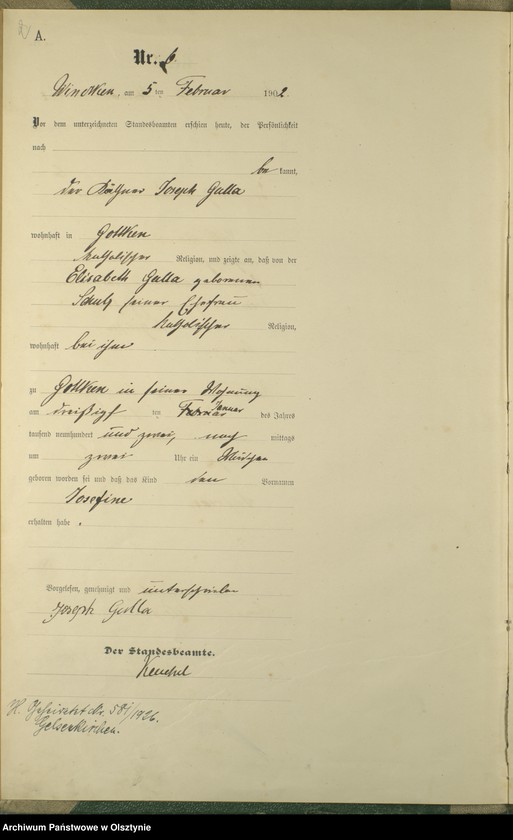 A.
Nr. 6
am 5 ten Februar 1902.
Vor dem unterzeichneten Standesbeamten erschien heute, der Persönlichkeit
nach
be kannt,
der Käthner Joseph Galla
wohnhaft in Gottken
katholischer Religion, und zeigte an, daß von der
Elisabeth Galla geborenen
Schulz seiner Ehefrau
katholischer Religion,
wohnhaft bei ihm
zu Gottken in seiner Wohnung
am dreißigst ten Februar Januar des Jahres
tausend neunhundert und zwei, nach mittags
um zwei Uhr ein Mädchen
geboren worden sei und daß das Kind den Vornamen
Josefine
erhalten habe.
Vorgelesen, genehmigt und unterschrieben
Joseph Galla
Der Standesbeamte.
H. Geheiratet Nr. 581/1926.
Gelsenkirchen.
Archiwum Państwowe w Olsztynie